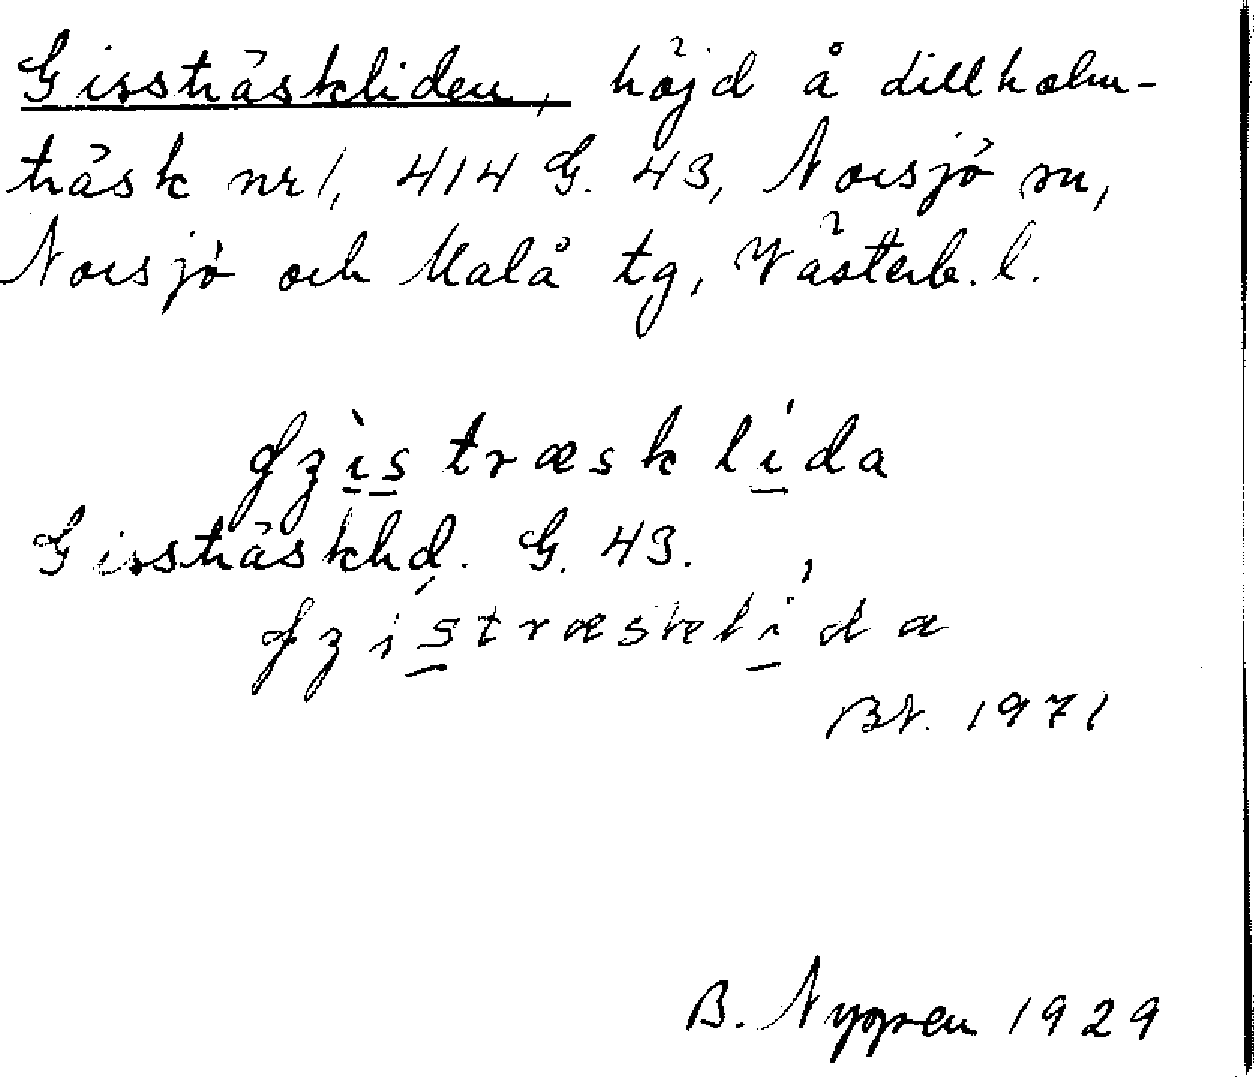 Gissträskliden, höjd å Lillholm-
träsk nr 1, 414 G. 43, Norsjö sn,
Norsjö och Malå tg, Västerb. l.
ɟʒìstræsklída
Gissträsklid. G. 43.
ɟʒístræsklída
BN. 1971
B. Nygren 1929